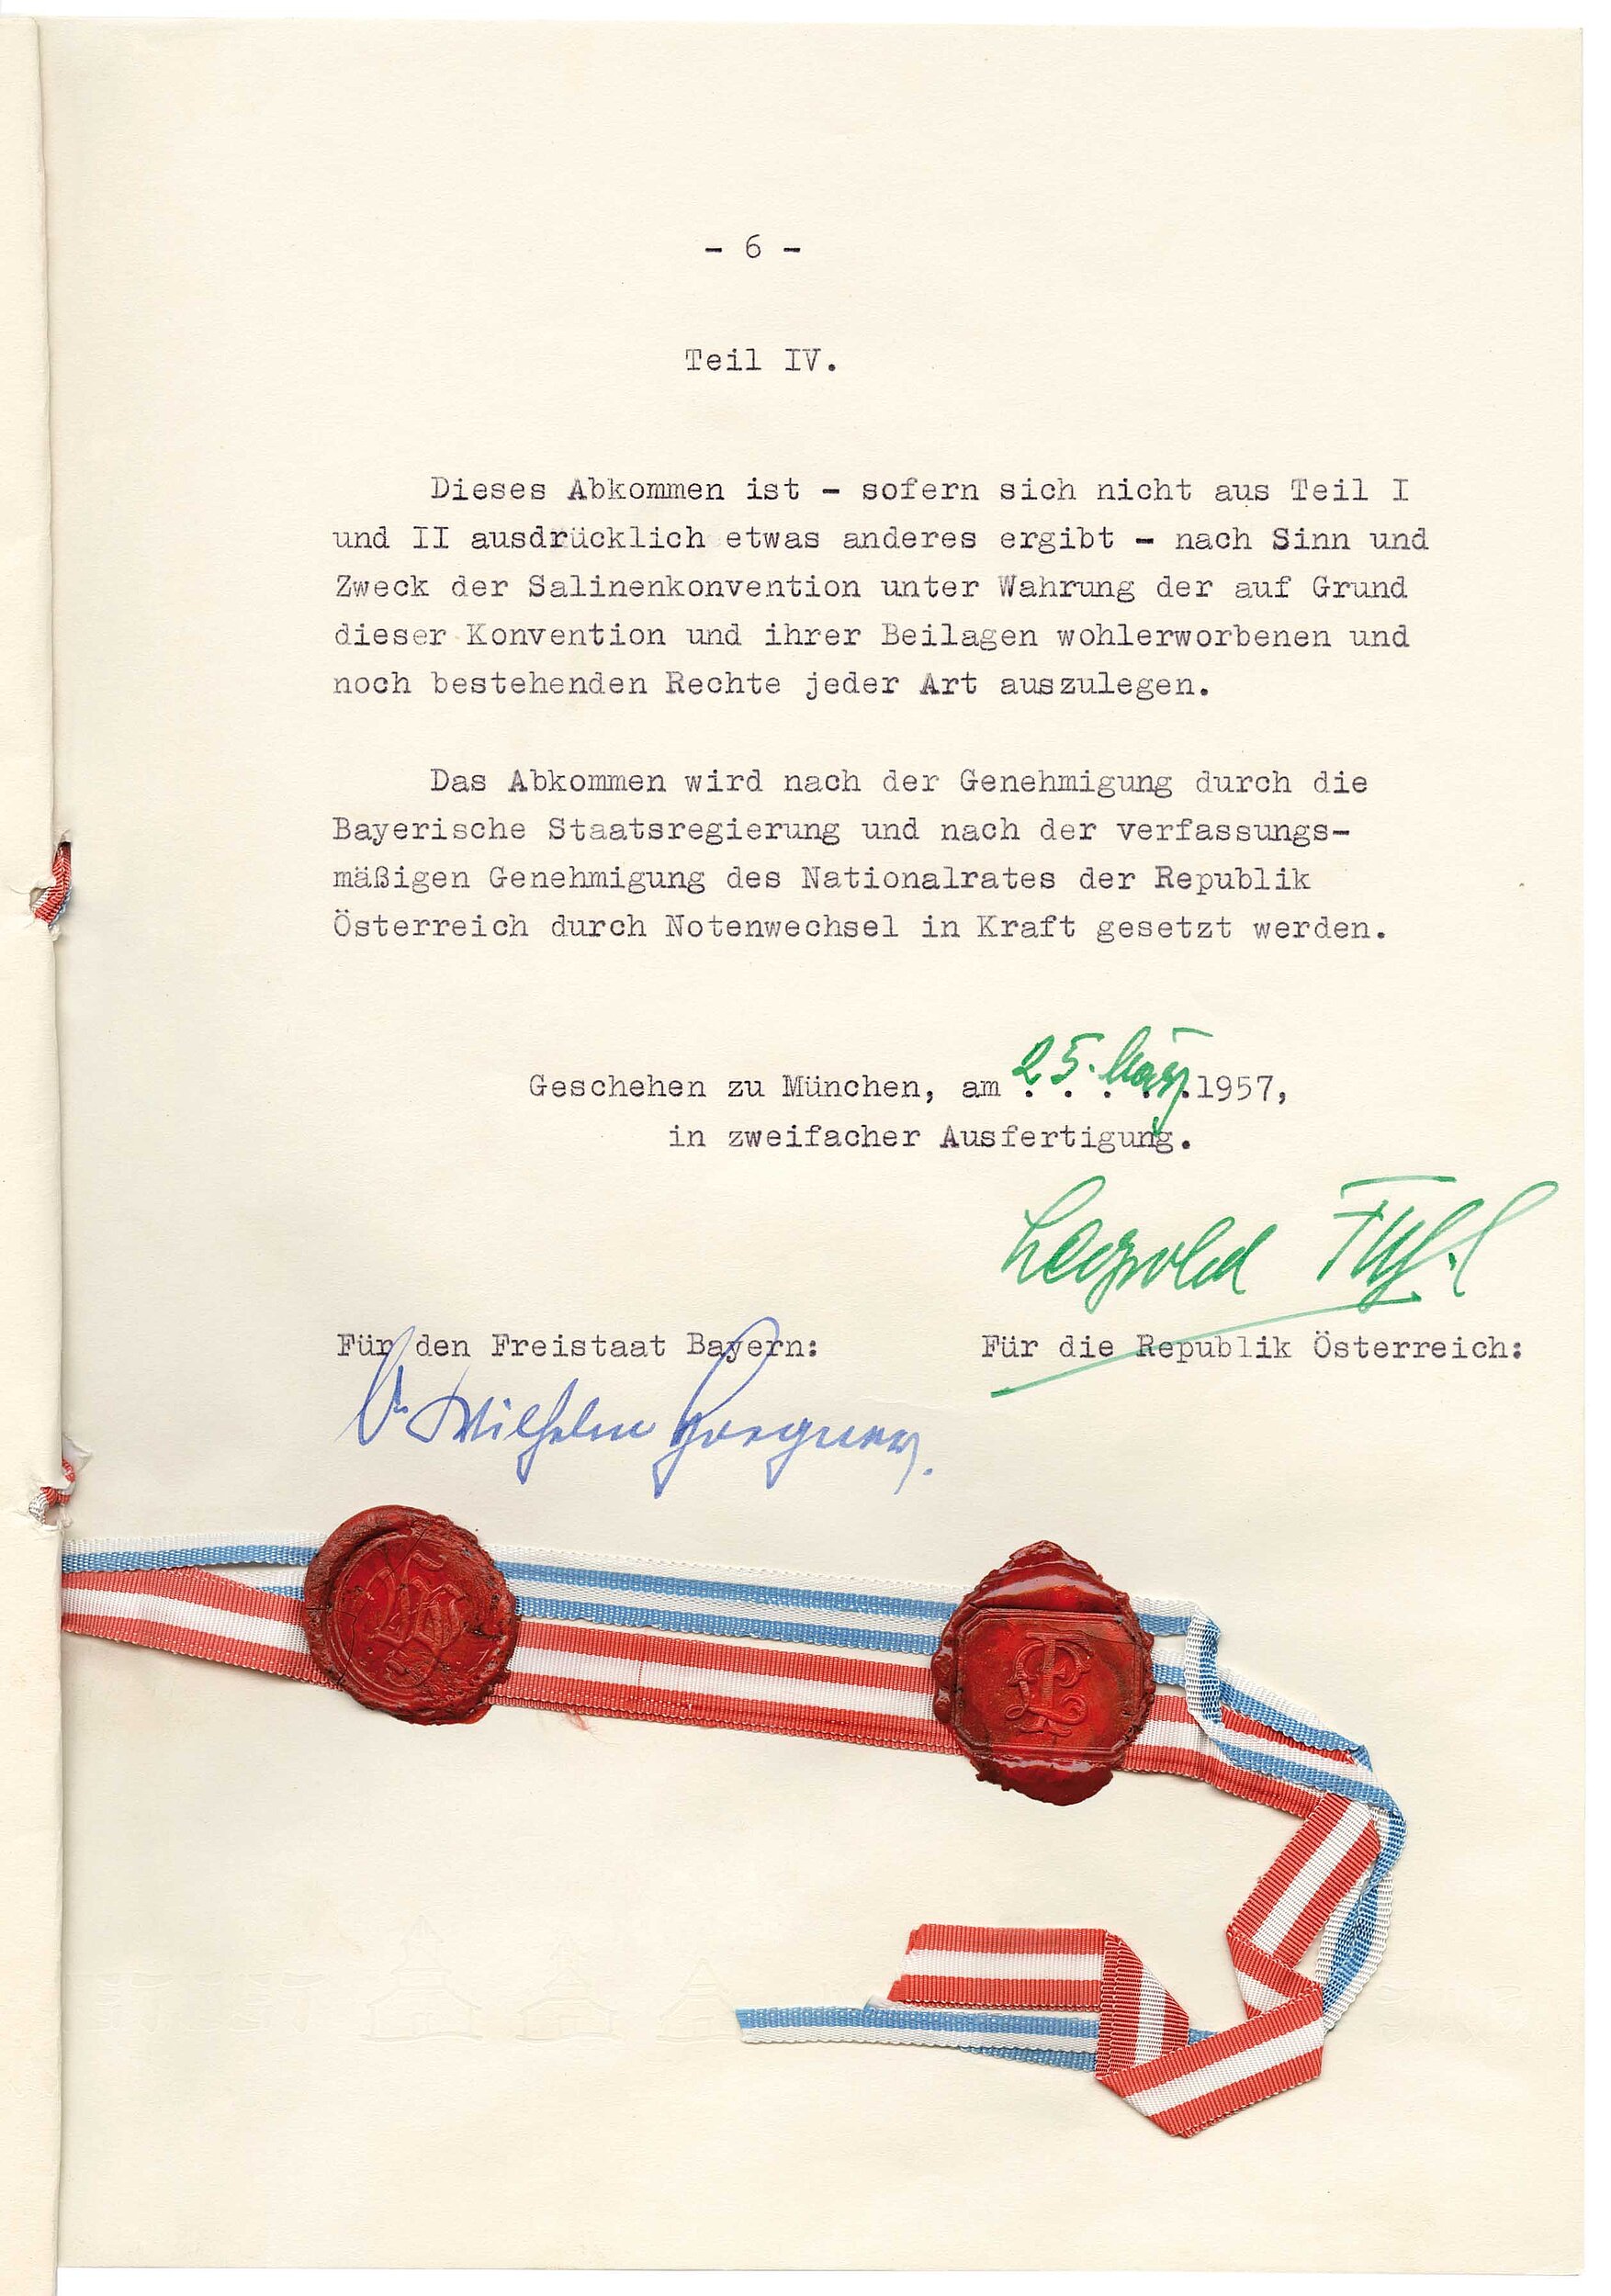 - 6 -
Teil IV.
Dieses Abkommen ist - sofern sich nicht aus Teil I
und II ausdrücklich etwas anderes ergibt - nach Sinn und
Zweck der Salinenkonvention unter Wahrung der auf Grund
dieser Konvention und ihrer Beilagen wohlerworbenen und
noch bestehenden Rechte jeder Art auszulegen.
Das Abkommen wird nach der Genehmigung durch die
Bayerische Staatsregierung und nach der verfassungs-
mäßigen Genehmigung des Nationalrates der Republik
Österreich durch Notenwechsel in Kraft gesetzt werden.
Geschehen zu München, am 25. März 1957,
in zweifacher Ausfertigung.
Leopold Figl
Für den Freistaat Bayern: Für die Republik Österreich:
Dr. Wilhelm Hoegner.